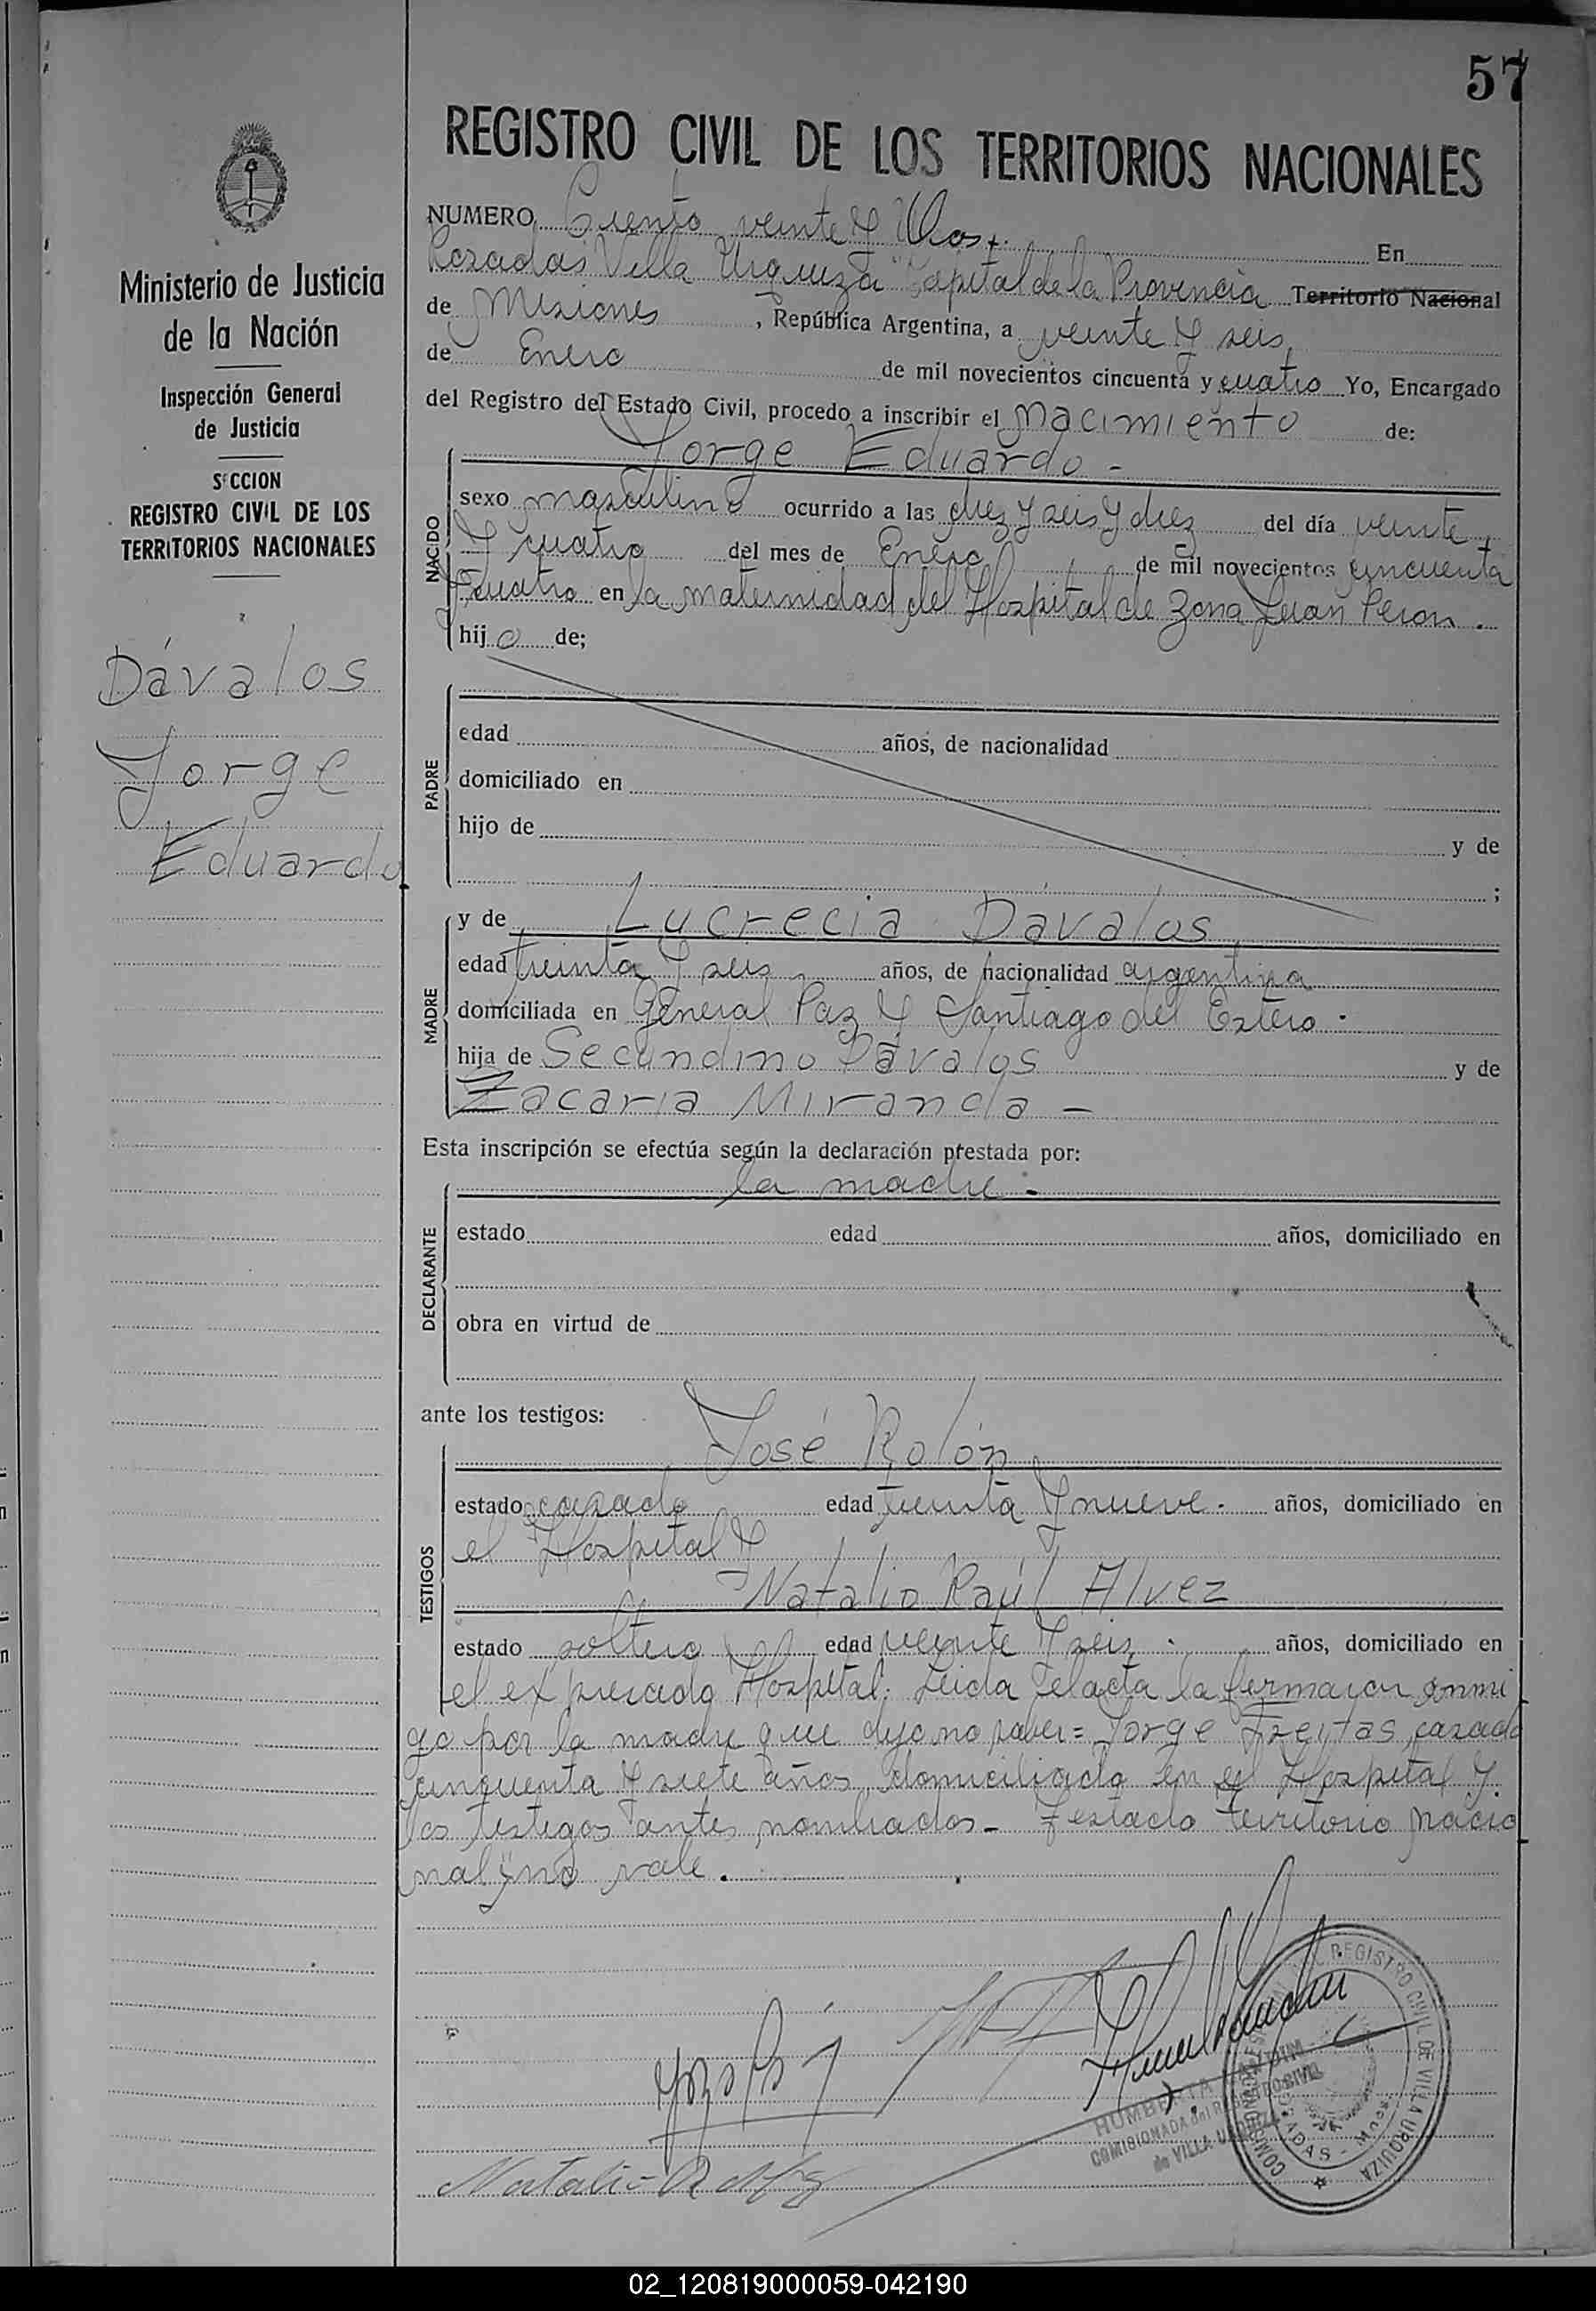 57
REGISTRO CIVIL DE LOS TERRITORIOS NACIONALES
Ministerio de Justicia
de la Nación
Inspección General
de Justicia
SECCION
REGISTRO CIVIL DE LOS
TERRITORIOS NACIONALES
Dávalos
Jorge
Eduardo
NUMERO Ciento veinte y Dos. En
Posadas Villa Urquiza Capital de la Provincia Territorio Nacional
de Misiones, República Argentina, a veinte y seis
de Enero de mil novecientos cincuenta y cuatro Yo, Encargado
del Registro del Estado Civil, procedo a inscribir el Nacimiento de:
Jorge Eduardo -
NACIDO
sexo masculino ocurrido a las diez y seis y diez del día veinte
y cuatro del mes de Enero de mil novecientos cincuenta
y cuatro en la maternidad del Hospital de Zona Juan Peron.
hijo de;
PADRE
edad años, de nacionalidad
domiciliado en
hijo de y de
;
MADRE
y de Lucrecia Dávalos
edad treinta y seis años, de nacionalidad argentina
domiciliada en General Paz y Santiago del Estero.
hija de Secundino Dávalos y de
Zacaria Miranda -
Esta inscripción se efectúa según la declaración prestada por:
la madre.
DECLARANTE
estado edad años, domiciliado en
obra en virtud de
ante los testigos:
José Rolón
TESTIGOS
estado casado edad treinta y nueve. años, domiciliado en
el Hospital y
Natalio Raúl Alvez
estado soltero edad veinte y seis. años, domiciliado en
el expresado Hospital. Leida el acta la firmaron conmi
go por la madre que dijo no saber = Jorge Freitas, casado
cincuenta y siete años, domiciliado en el Hospital y
los testigos antes nombrados - Testado territorio nacio
nal "no vale.
Natalio R Alvez
HUMBERTA
COMISIONADA del REGISTRO CIVIL
de VILLA URQUIZA
REGISTRO CIVIL DE VILLA URQUIZA
POSADAS - Mnes.
02_120819000059-042190